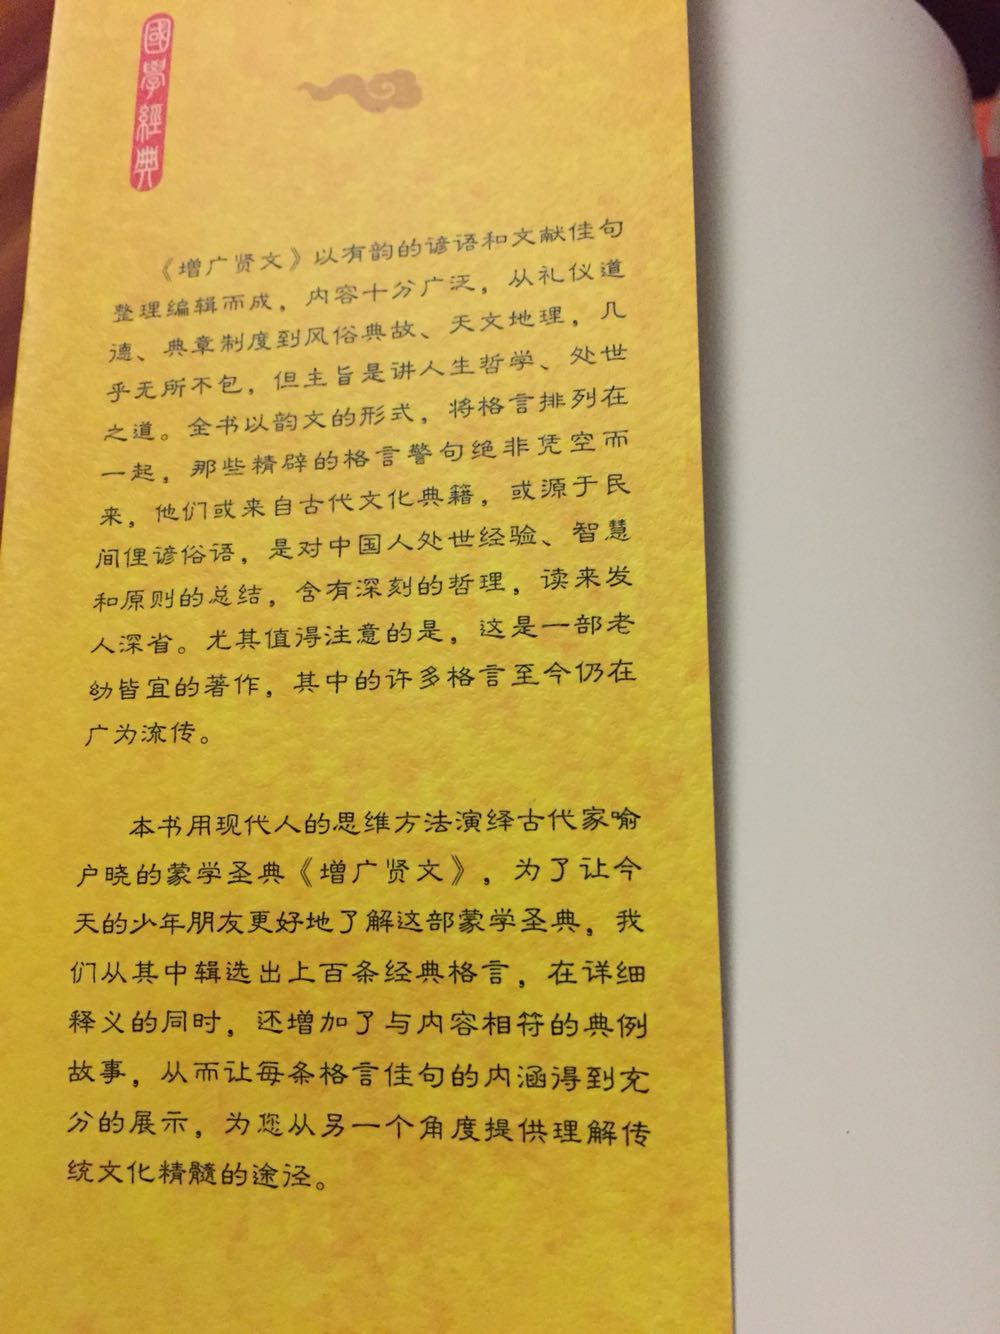 國學經典
《增广贤文》以有韵的谚语和文献佳句
整理编辑而成，内容十分广泛，从礼仪道
德、典章制度到风俗典故、天文地理，几
乎无所不包，但主旨是讲人生哲学、处世
之道。全书以韵文的形式，将格言排列在
一起，那些精辟的格言警句绝非凭空而
来，他们或来自古代文化典籍，或源于民
间俚谚俗语，是对中国人处世经验、智慧
和原则的总结，含有深刻的哲理，读来发
人深省。尤其值得注意的是，这是一部老
幼皆宜的著作，其中的许多格言至今仍在
广为流传。
本书用现代人的思维方法演绎古代家喻
户晓的蒙学圣典《增广贤文》，为了让今
天的少年朋友更好地了解这部蒙学圣典，我
们从其中辑选出上百条经典格言，在详细
释义的同时，还增加了与内容相符的典例
故事，从而让每条格言佳句的内涵得到充
分的展示，为您从另一个角度提供理解传
统文化精髓的途径。